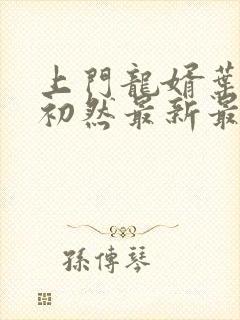 上門龍婿葉
初然最新最
孫傳琴